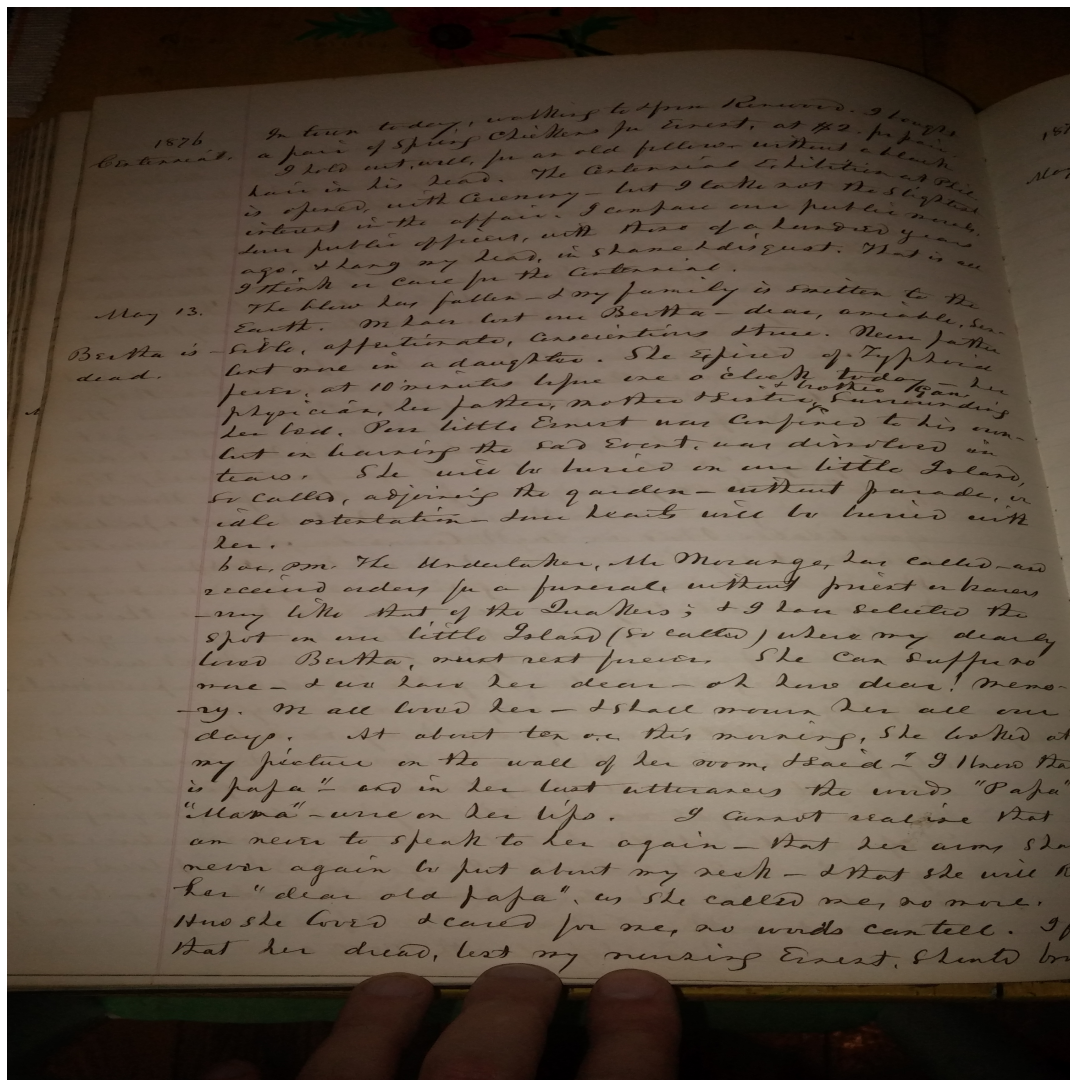 1876
Centennial.
In town today, walking to & from Kenwood. I bought
a pair of Spring Chickens for Ernest, at $2. pr pair.
I hold out, well, for an old fellow without a black
hair in his head. The Centennial Exhibition at Phil.
is opened, with Ceremony – but I take not the slightest
interest in the affair. I compare our public morals,
& our public officers, with those of a hundred years
ago, & hang my head, in shame & disgust. That is all
I think or care for the Centennial.
May 13.
The blow has fallen – & my family is smitten to the
Earth. We have lost our Bertha – dear, amiable, sen-
Bertha is
dead.
sible, affectionate, conscientious & true. Never father
lost more in a daughter. She expired of Typhoid
fever, at 10 minutes before one o'clock today – her
physician, her father, mother & Sister, & brother Egan, Surrounding
her bed. Poor little Ernest was confined to his own –
but on learning the sad event, was dissolved in
tears. She will be buried on our little Island,
so called, adjoining the garden – without parade, or
idle ostentation – & our hearts will be buried with
her.
6 oc, pm. The Undertaker, Mr Morange, has called – and
received orders for a funeral, without priest or bearers
– my like that of the Quakers; & I have selected the
spot on our little Island (so called) where my dearly
loved Bertha, must rest forever. She can suffer no
more – & we have her dear – oh how dear! memo-
-ry. We all loved her – & shall mourn her all our
days. At about ten oc, this morning, she looked at
my picture on the wall of her room, & said – "I know
is papa" – and in her last utterances the words "Papa"
"Mama" – were on her lips. I cannot realise that
am never to speak to her again – that her arms
never again to put about my neck – & that she will
her "dear old papa", as she called me, no more.
How she loved & cared for me, no words can tell. I
that her dread, lest my nursing Ernest, should